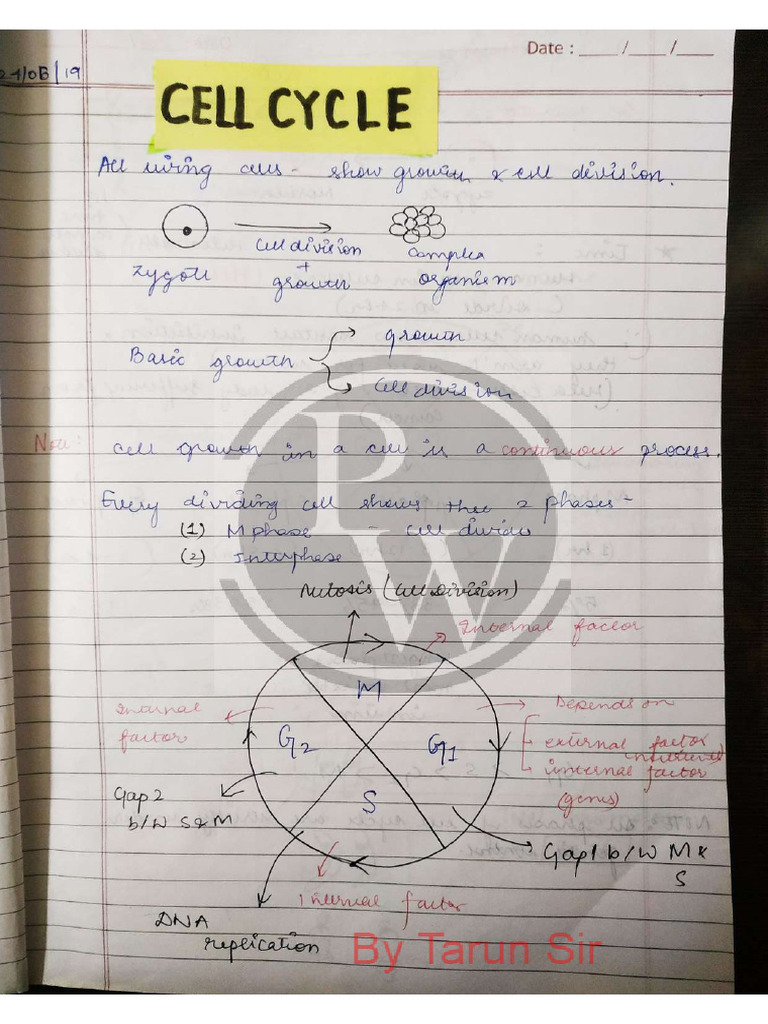 Date : ___/___/___
CELL CYCLE
All living cells - show growth & cell division.
Cell division
+
growth
zygote
Complex
organism
Basic growth
growth
Cell division
Note: Cell growth in a cell is a continuous process.
Every dividing cell shows these 2 phases -
(1) M phase - cell division
(2) Interphase
Mitosis (Cell Division)
Internal factor
M
Internal
factor
G2
G1
S
Depends on
external factor
(nutrients)
internal factor
(genes)
Gap 2
b/W S & M
Gap 1 b/W M &
S
Internal factor
DNA
replication
By Tarun Sir
PW